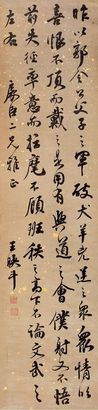 昨以郭令公父子之軍破犬羊兇逆之衆衆情欣
喜恨不頂而戴之是用有興道之會僕射又不悟
前失徑率意而指麾不顧班秩之高下不論文武之
左右
臣二兄雅正
王映斗